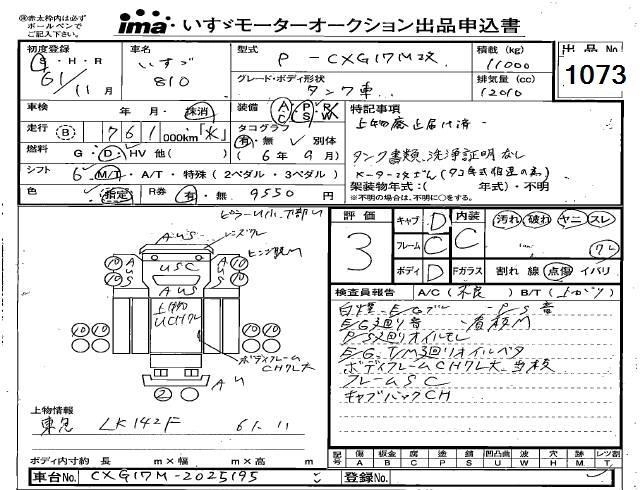 ㊟赤太枠内は必ず
ボールペンで
ご記入下さい。
ima いすゞモーターオークション出品申込書
初度登録
S・H・R
61/11月
車名
いすゞ
810
型式
P-CXG17M改
グレード・ボディ形状
タンク車
積載(kg)
11000
排気量(cc)
12010
出品No
1073
車検 年・月・抹消
装備 A/C P/S R/W
走行 B 761,000km「水」
タコグラフ
有・無 別体
(6年9月)
燃料 G・D・HV 他( )
シフト 6 M/T・A/T・特殊(2ペダル・3ペダル)
色 指定 R券 有・無 9550円
特記事項
上物廃止届け済
タンク書類、洗浄証明なし
架装物年式:( 年式)・不明
※不明の場合は、不明に○をする。
評価
3
キャブ D
フレーム C
ボディ D
内装 C
Fガラス
汚れ・破れ・ヤニ・スレ
割れ 線 点傷 イバリ
検査員報告 A/C(不良) B/T(上がり)
P/S音
E/G廻り音
P/S廻りオイルモレ
E/G、T/M廻りオイルベタ
ボディフレームCHクレ大
フレームSC
キャブバックCH
AUS
USC
AUS
上物
UCHクレ
ボディフレーム
CHクレ大
AU
上物情報
東急 LK142F 61.11
ボディ内寸約 長 m×幅 m×高 m
記号
傷 A
板金 B
腐 C
塗 P
錆 S
凹凸曲 U
波 W
穴 H
跡 M
レツ割 T
車台No. CXG17M-2025195
登録No.